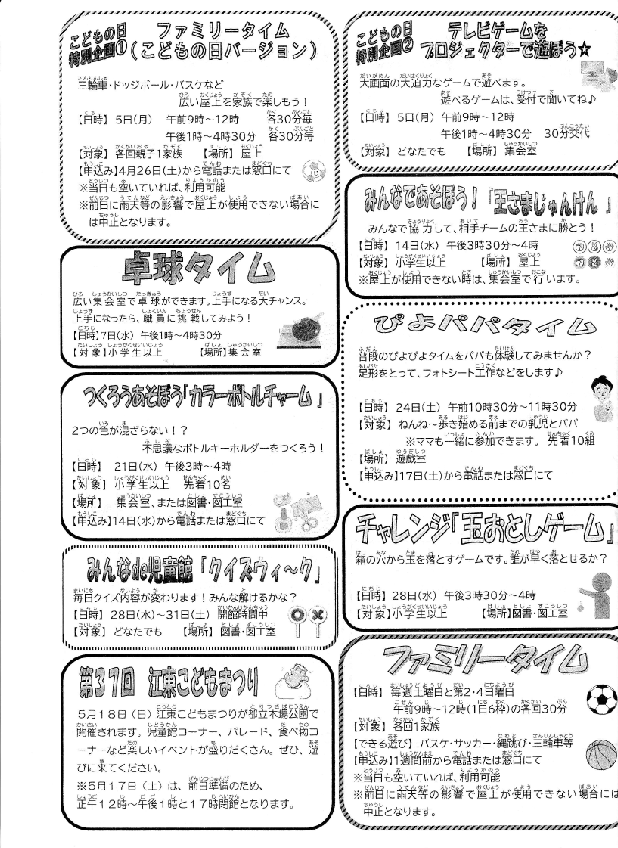 こどもの日
特別企画①
ファミリータイム
(こどもの日バージョン)
三輪車・ドッジボール・バスケなど
広い屋上を家族で楽しもう!
【日時】 5日(月) 午前9時~12時 各30分毎
午後1時~4時30分 各30分毎
【対象】 各回親子1家族 【場所】 屋上
【申込み】4月26日(土)から電話または窓口にて
※当日も空いていれば、利用可能
※前日に雨天等の影響で屋上が使用できない場合に
は中止となります。
卓球タイム
広い集会室で卓球ができます。上手になる大チャンス。
上手になったら、職員に挑戦してみよう!
【日時】7日(水) 午後1時~4時30分
【対象】小学生以上 【場所】集会室
つくろうあそぼう「カラーボトルチャーム」
2つの色が混ざらない!?
不思議なボトルキーホルダーをつくろう!
【日時】 21日(水) 午後3時~4時
【対象】 小学生以上 先着10名
【場所】 集会室、または図書・図工室
【申込み】14日(水)から電話または窓口にて
みんなde児童館「クイズウィ~ク」
毎日クイズ内容が変わります!みんな解けるかな?
【日時】 28日(水)~31日(土) 開館時間中
【対象】 どなたでも 【場所】 図書・図工室
第37回 江東こどもまつり
5月18日(日)江東こどもまつりが都立木場公園で
開催されます。児童館コーナー、パレード、食べ物コ
ーナーなど楽しいイベントが盛りだくさん。ぜひ、遊
びに来てください。
※5月17日(土)は、前日準備のため、
正午12時~午後1時と17時閉館となります。
こどもの日
特別企画②
テレビゲームな
プロジェクターで遊ぼう☆
大画面の大迫力なゲームで遊べます。
遊べるゲームは、受付で聞いてね♪
【日時】 5日(月) 午前9時~12時
午後1時~4時30分 30分交代
【対象】 どなたでも 【場所】 集会室
みんなであそぼう!「王さまじゃんけん」
みんなで協力して、相手チームの王さまに勝とう!
【日時】14日(水) 午後3時30分~4時
【対象】 小学生以上 【場所】 屋上
※屋上が使用できない時は、集会室で行います。
ぴよパパタイム
普段のぴよぴよタイムをパパも体験してみませんか?
足形をとって、フォトシート工作などをします♪
【日時】 24日(土) 午前10時30分~11時30分
【対象】 ねんね~歩き始める前までの乳児とパパ
※ママも一緒に参加できます。 先着10組
【場所】 遊戯室
【申込み】17日(土)から電話または窓口にて
チャレンジ「玉おとしゲーム」
箱の穴から玉を落とすゲームです、誰が早く落とせるか?
【日時】 28日(水) 午後3時30分~4時
【対象】小学生以上 【場所】図書・図工室
ファミリータイム
【日時】 毎週土曜日と第2・4日曜日
午前9時~12時(1日6枠)の各回30分
【対象】 各回1家族
【できる遊び】 バスケ・サッカー・縄跳び・三輪車等
【申込み】1週間前から電話または窓口にて
※当日も空いていれば、利用可能
※前日に雨天等の影響で屋上が使用できない場合には
中止となります。